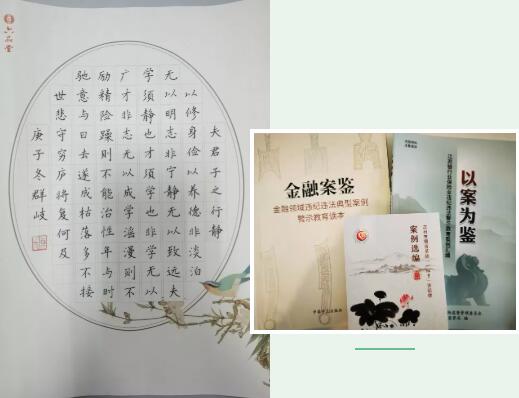 六品堂
夫君子之行静
以修身俭以养德非淡泊
无以明志非宁静无以致远夫
学须静也才须学也非学无以
广才非志无以成学滔漫则不
励精险躁则不能治性年与时
驰意与日去遂成枯落多不接
世悲守穷庐将复何及
庚子冬群岐
金融案鉴
金融领域违纪违法典型案例
警示教育读本
案例选编
以案为鉴